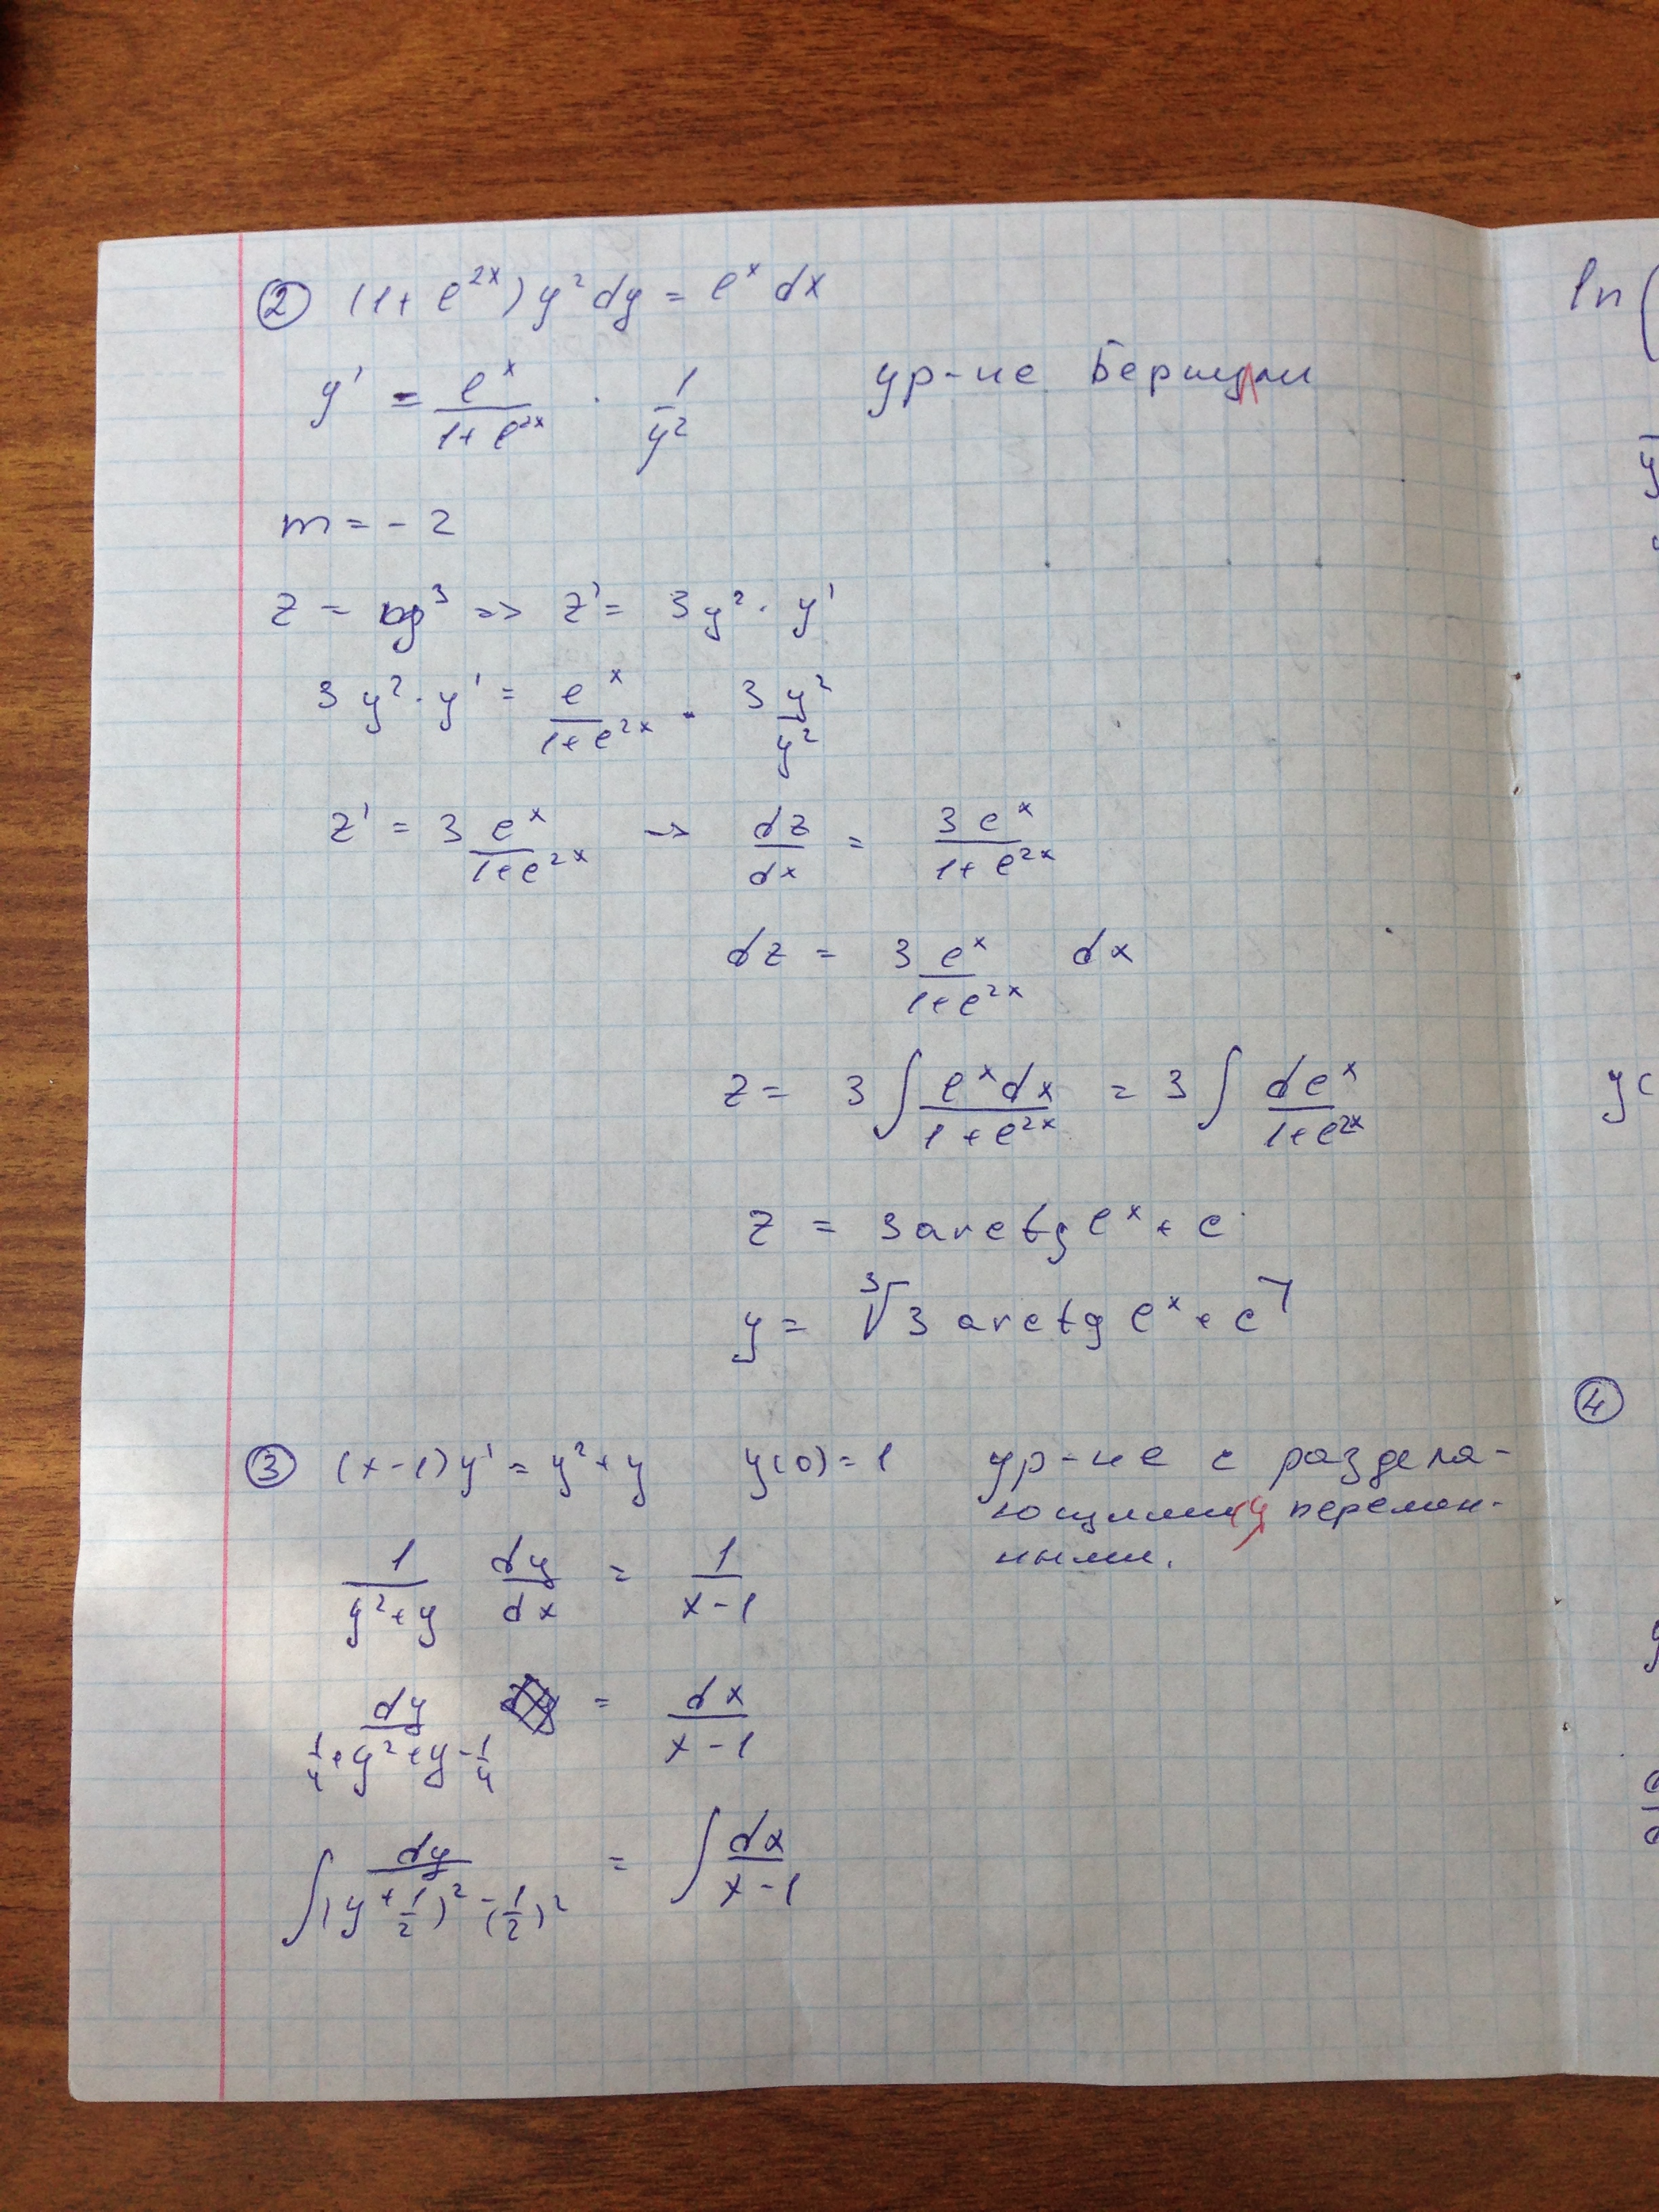 ② (1+e^{2x})y²dy = e^x dx
y' = e^x/(1+e^{2x}) · 1/y² ур-ие Бернулли
m = -2
z = y³ => z' = 3y² · y'
3y² · y' = e^x/(1+e^{2x}) · 3y²/y²
z' = 3 e^x/(1+e^{2x}) → dz/dx = 3e^x/(1+e^{2x})
dz = 3 e^x/(1+e^{2x}) dx
z = 3∫ e^x dx/(1+e^{2x}) = 3∫ de^x/(1+e^{2x})
z = 3 arctg e^x + c
y = ∛(3 arctg e^x + c)
③ (x-1)y' = y²+y y(0)=1 ур-ие с разделя-
ющимися перемен-
ными.
1/(y²+y) dy/dx = 1/(x-1)
dy/(1/4+y²+y-1/4) = dx/(x-1)
∫ dy/((y+1/2)²-(1/2)²) = ∫ dx/(x-1)
ln(
y(
④